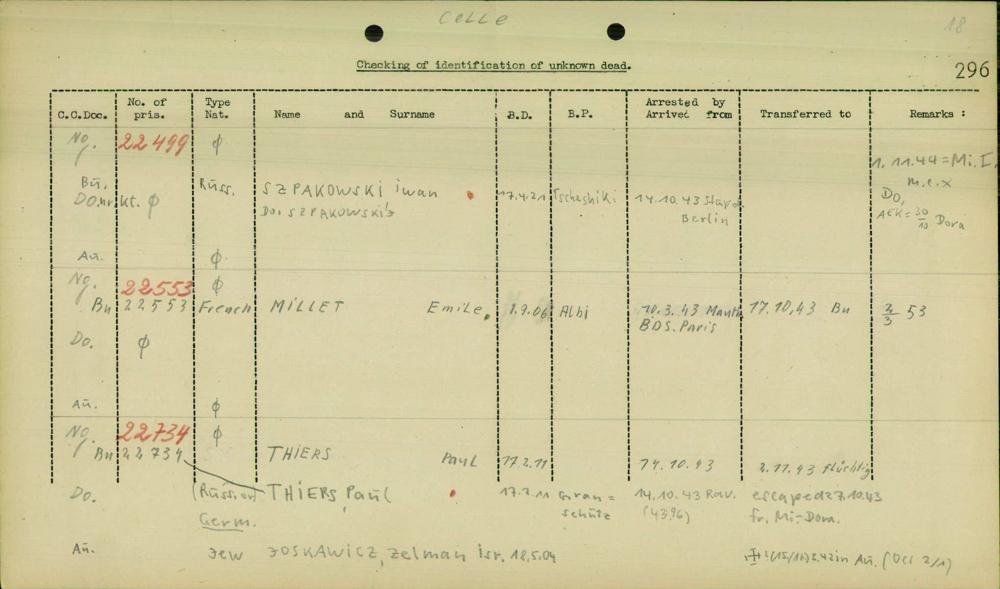 Celle
18
Checking of identification of unknown dead.
296
C.C.Doc. No. of pris. Type Nat. Name and Surname B.D. B.P. Arrested by Arrived from Transferred to Remarks :
No. 22499 ϕ
1. 11.44 = Mi. I,
m.e.x
Bu. Russ. SZPAKOWSKI iwan 17.4.21 Tscheshiki 14.10.43 Stapo Do,
Do.nr.kt. ϕ Do. SZPAKOWSKij Berlin AEK = 30/10 Dora
Au. ϕ
No. 22553 ϕ
Bu 22553 French MILLET Emile, 1.9.06 Albi 10.3.43 Mauth. 17.10.43 Bu 53
BDS. Paris
Do. ϕ
Au. ϕ
No. 22734 ϕ
Bu 22734 THIERS Paul 17.2.11 14.10.43 2.11.43 flüchtig
Do. (Russian) THIERS, Paul 17.2.11 Gran= 14.10.43 Rav. escaped 27.10.43
Germ. schütz (4396) fr. Mi-Dora.
Au. Jew JOSKAWICZ, Zelman isr. 18.5.04 42 in Au. (Occ 2/1)